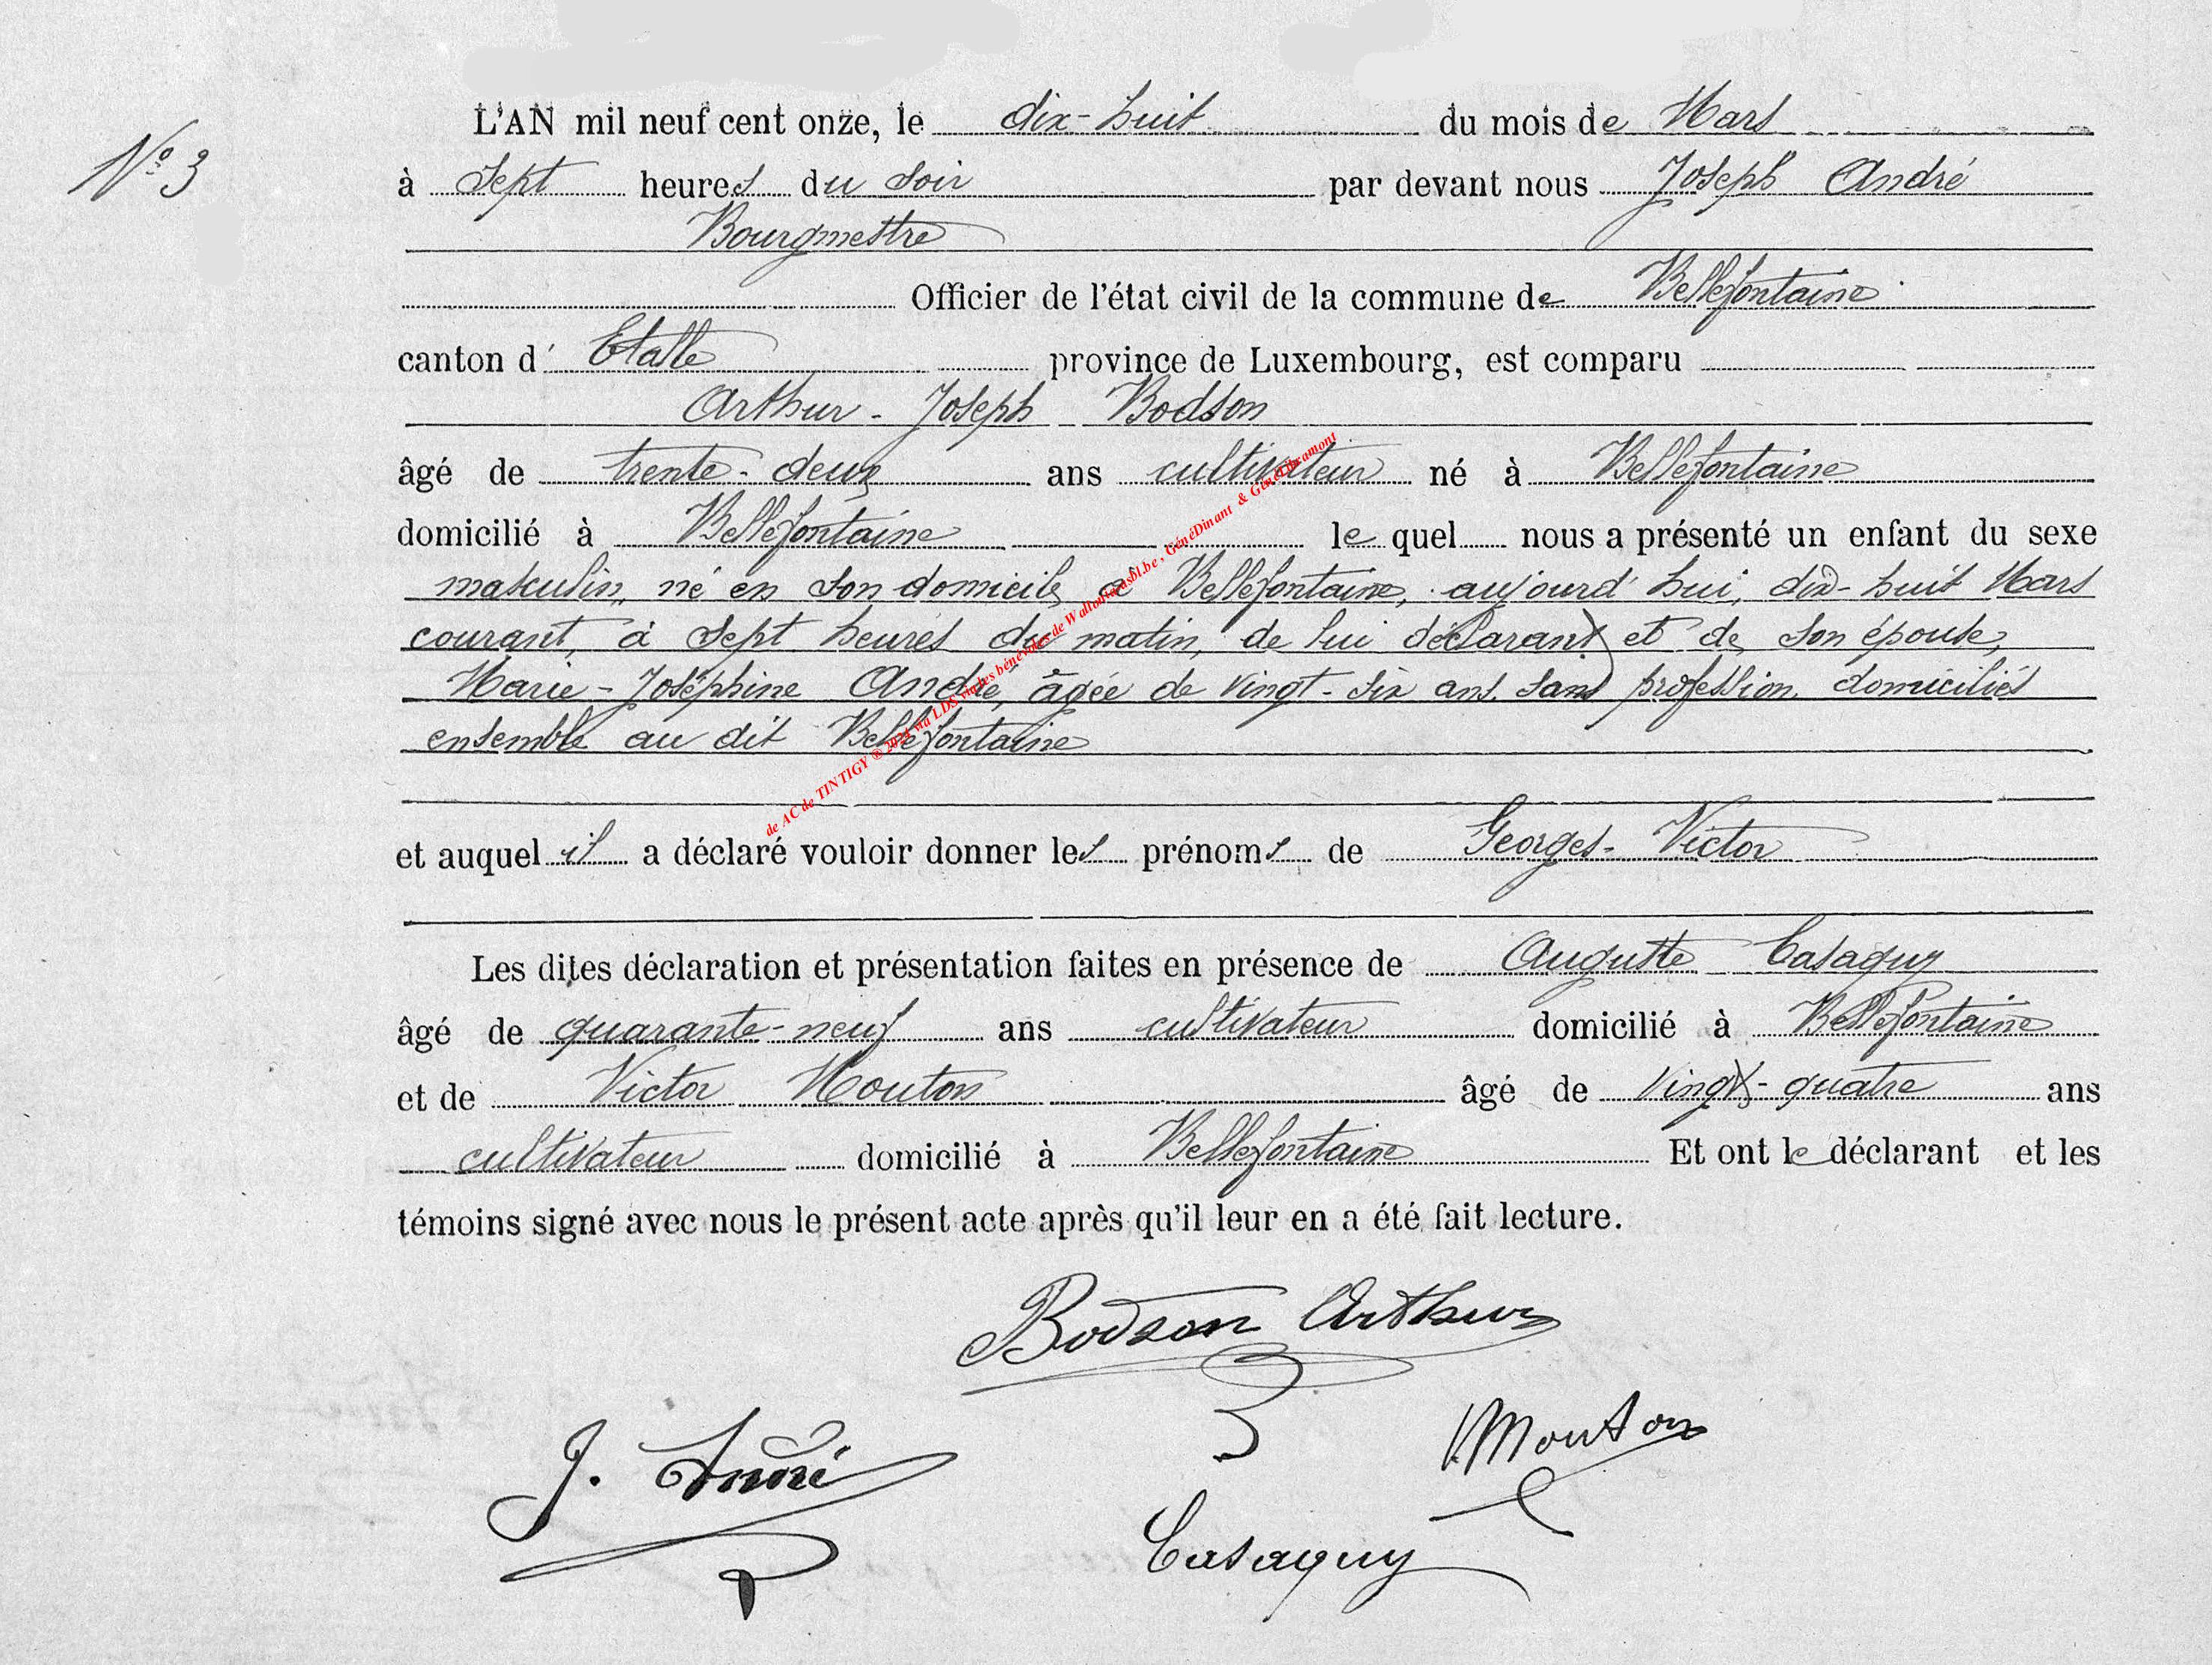 N° 3
L'AN mil neuf cent onze, le dix-huit du mois de Mars
à Sept heures du soir par devant nous Joseph André
Bourgmestre
Officier de l'état civil de la commune de Bellefontaine
canton d' Etalle province de Luxembourg, est comparu
Arthur - Joseph Bodson
âgé de trente-deux ans cultivateur né à Bellefontaine
domicilié à Bellefontaine le quel nous a présenté un enfant du sexe
masculin, né en son domicile à Bellefontaine, aujourd'hui, dix-huit Mars
courant, à Sept heures du matin, de lui déclarant et de son épouse,
Marie-Joséphine André, âgée de vingt-six ans, sans profession, domiciliés
ensemble au dit Bellefontaine
et auquel il a déclaré vouloir donner les prénoms de Georges-Victor
Les dites déclaration et présentation faites en présence de Auguste Casaquy
âgé de quarante-neuf ans cultivateur domicilié à Bellefontaine
et de Victor Mouton âgé de vingt-quatre ans
cultivateur domicilié à Bellefontaine Et ont le déclarant et les
témoins signé avec nous le présent acte après qu'il leur en a été fait lecture.
Bodson Arthur
J. André
V Mouton
Casaquy
de AC de TINTIGY © 2024 via LDS via les bénévoles de Wallonia asbl.be ; GénéDinant & GénéLibramont